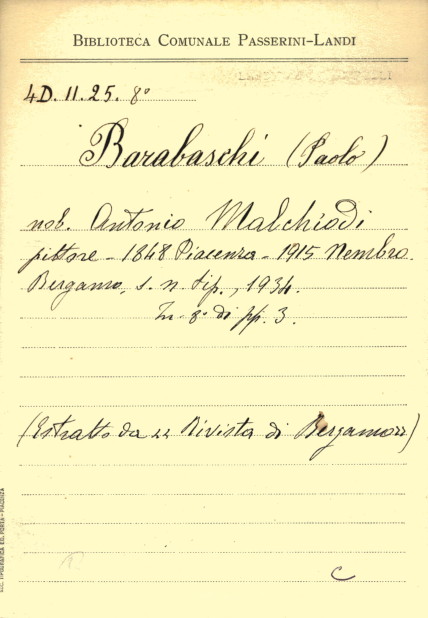 BIBLIOTECA COMUNALE PASSERINI-LANDI
4D. 11. 25. 8°
Barabaschi (Paolo)
nob. Antonio Malchiodi
pittore - 1848 Piacenza - 1915 Nembro.
Bergamo, s. n. tip., 1934.
In 8° di pp. 3.
(Estratto da "Rivista di Bergamo")
C